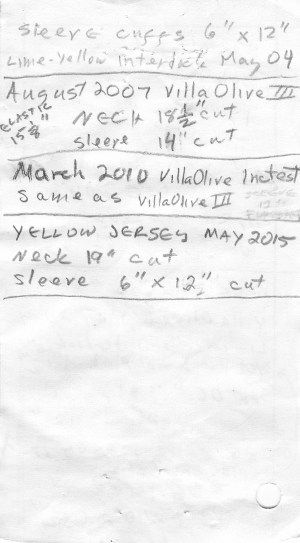 Sleeve cuffs 6" x 12"
Lime-Yellow Interdick May 04
August 2007 Villa Olive III
ELASTIC 15 5/8"
NECK 18 1/2" cut
sleeve 14" cut
March 2010 Villa Olive Inctest
Same as Villa Olive III
YELLOW JERSEY MAY 2015
Neck 19" cut
sleeve 6" x 12" cut